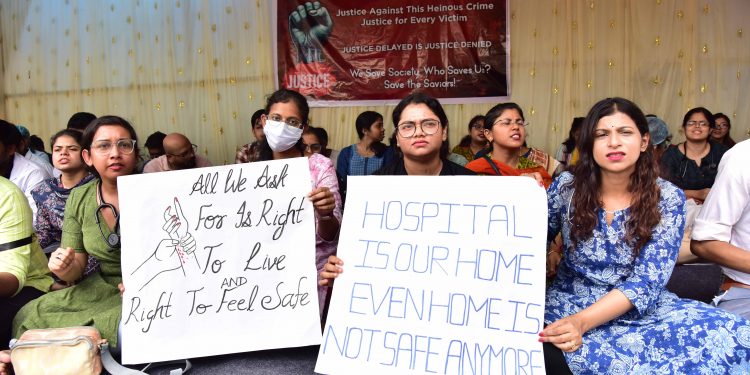 Justice Against This Heinous Crime
Justice for Every Victim
JUSTICE DELAYED IS JUSTICE DENIED
We Save Society, Who Saves Us?
Save the Saviors!
JUSTICE
All We Ask
For Is Right
To Live
AND
Right To Feel Safe
HOSPITAL
IS OUR HOME
EVEN HOME IS
NOT SAFE ANYMORE